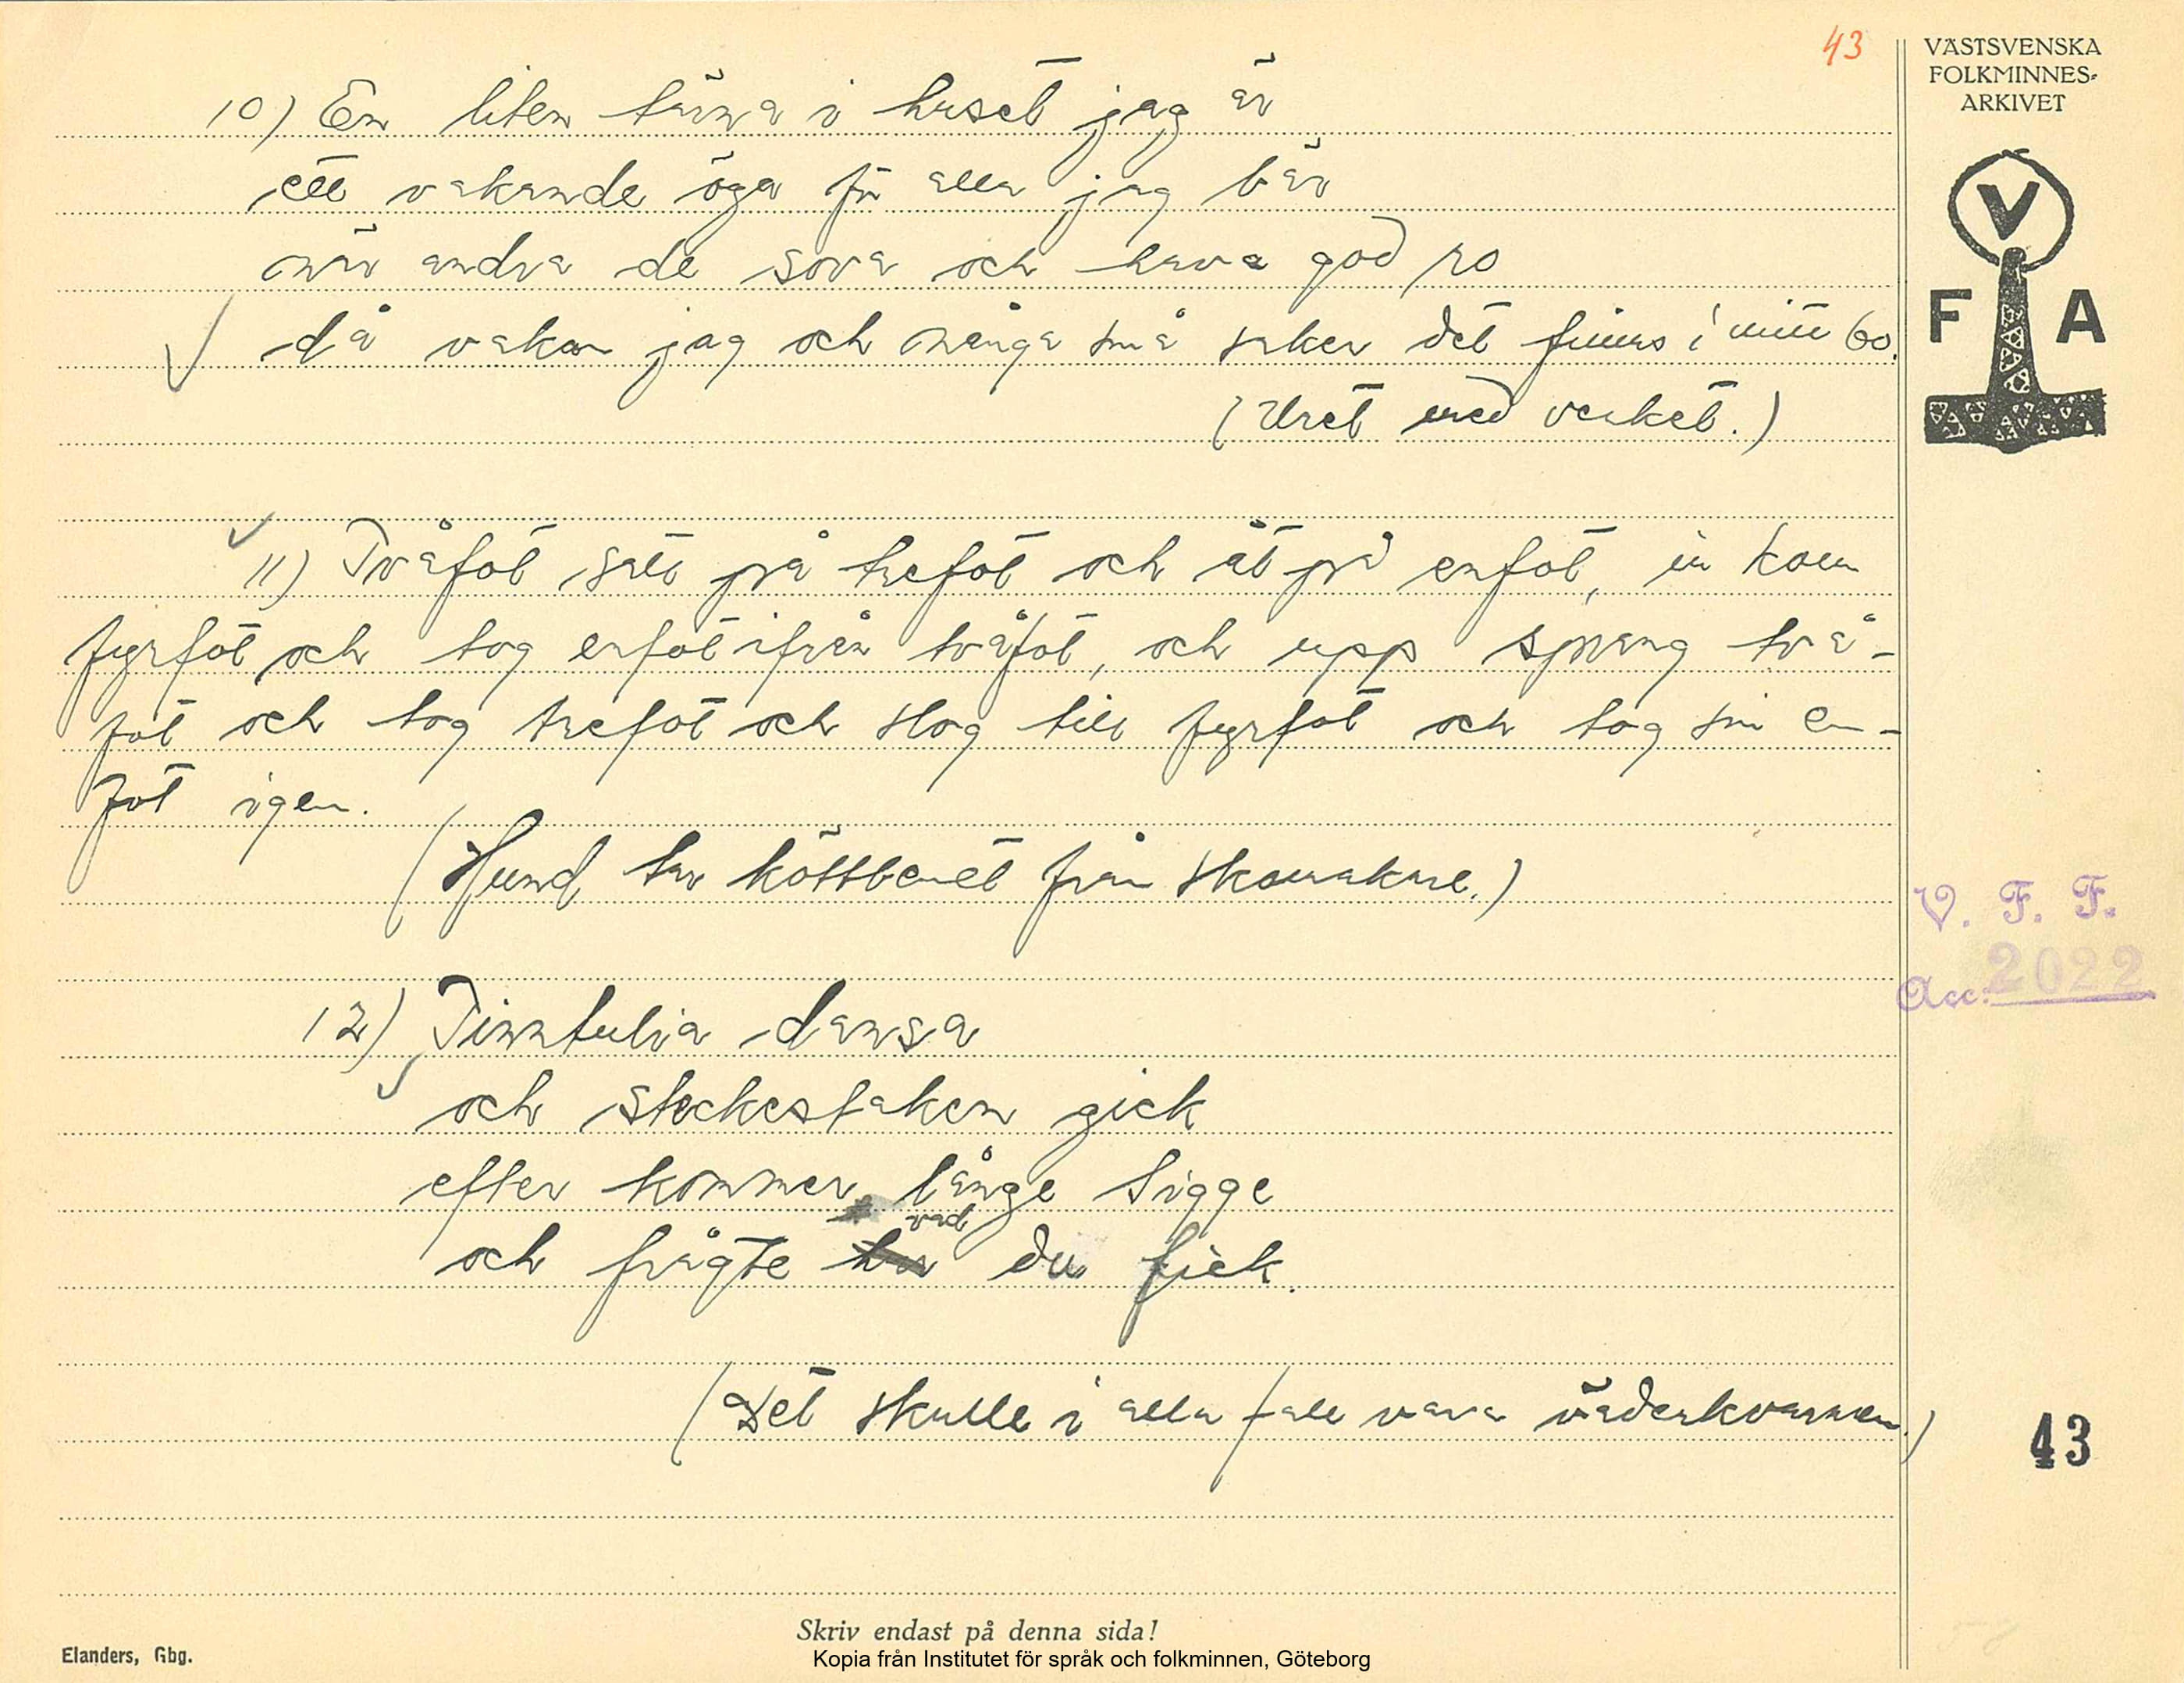 43
VÄSTSVENSKA
FOLKMINNES-
ARKIVET
V
F A
10) En liten tärna i huset jag är
ett vakande öga för alla jag bär
när andra de sova och hava god ro
då vakar jag och många små saker det finns i mitt bo.
(Uret med verket.)
11) Tvåfot satt på trefot och åt på enfot, in kom
fyrfot och tog enfot ifrån tvåfot, och upp sprang två-
fot och tog trefot och slog till fyrfot och tog sin en-
fot igen.
(Hund tar köttbenet från skomakare.)
V. F. F.
Acc: 2022
12) Tinntulia dansa
och steckestaken gick
efter kommer långe Sigge
vad
och frågte du fick.
(Det skulle i alla fall vara väderkvarnen)
43
Skriv endast på denna sida!
Elanders, Gbg.
Kopia från Institutet för språk och folkminnen, Göteborg